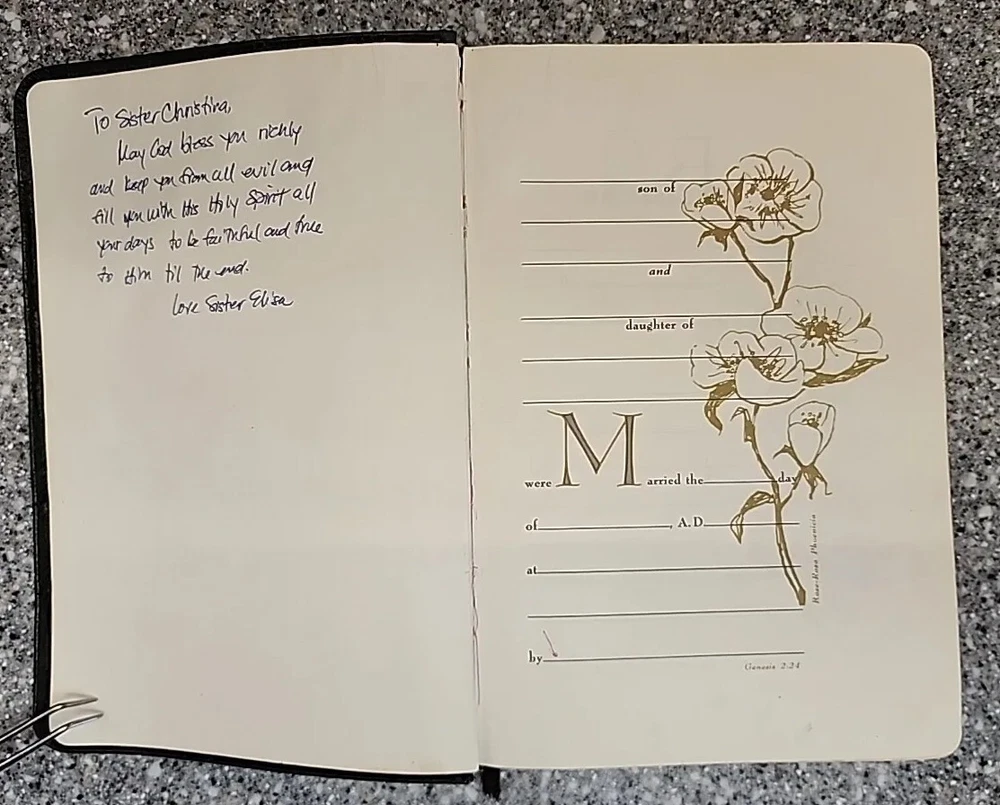 To Sister Christina,
May God bless you richly
and keep you from all evil and
fill you with His Holy Spirit all
your days to be faithful and true
to Him til the end.
Love Sister Elisa
son of
and
daughter of
were Married the day
of , A.D
at
by
Genesis 2:24
Rose-Rosa Phoenicia